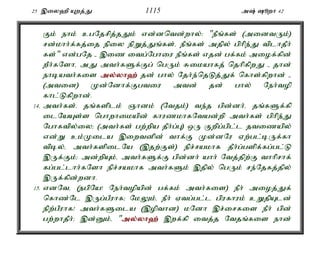 25 இலைஹி யுரத்து 1115 அஷ் ஷூறா 42
கும் நாம் உபதேசித்ததும் என்னவென்றால்: "நீங்கள் (அனைவரும்)
சன்மார்க்கத்தை நிலை நிறுத்துங்கள், நீங்கள் அதில் பிரிந்து விடாதீர்
கள்" என்பதே - இணை வைப்போரை நீங்கள் எதன் பக்கம் அழைக்கின்
றீர்களோ, அது அவர்களுக்குப் பெரும் சுமையாகத் தெரிகிறது - தான்
நாடியவர்களை அல்லாஹ் தன் பால் தேர்ந்தெடுத்துக் கொள்கிறான் -
(அவனை) முன்னோக்குபவரை அவன் தன் பால் நேர்வழி
காட்டுகிறான்.
14. அவர்கள், தங்களிடம் ஞானம் (வேதம்) வந்த பின்னர், தங்களுக்கி
டையேயுள்ள பொறாமையின் காரணமாகவேயன்றி அவர்கள் பிரிந்து
போகவில்லை; (அவர்கள் பற்றிய தீர்ப்பு) ஒரு குறிப்பிட்ட தவணையில்
என்று உம்முடைய இறைவனின் வாக்கு முன்னரே ஏற்பட்டிருக்கா
விடில், அவர்களிடையே (இதற்குள்) நிச்சயமாக தீர்ப்பளிக்கப்பட்டு
இருக்கும்; அன்றியும், அவர்களுக்கு பின்னர் யார் வேதத்திற்கு வாரிசாக்
கப்பட்டார்களோ நிச்சயமாக அவர்களும் இதில் பெரும் சந்தேகத்தில்
இருக்கின்றனர்.
15. எனவே, (நபியே! நேர்வழியின் பக்கம் அவர்களை) நீர் அழைத்துக்
கொண்டே இருப்பீராக; மேலும், நீர் ஏவப்பட்ட பிரகாரம் உறுதியுடன்
நிற்பீராக; அவர்களுடைய (இழிவான) மனோ இச்சைகளை நீர் பின்
பற்றாதீர்; இன்னும், "அல்லாஹ் இறக்கி வைத்த வேதங்களை நான்